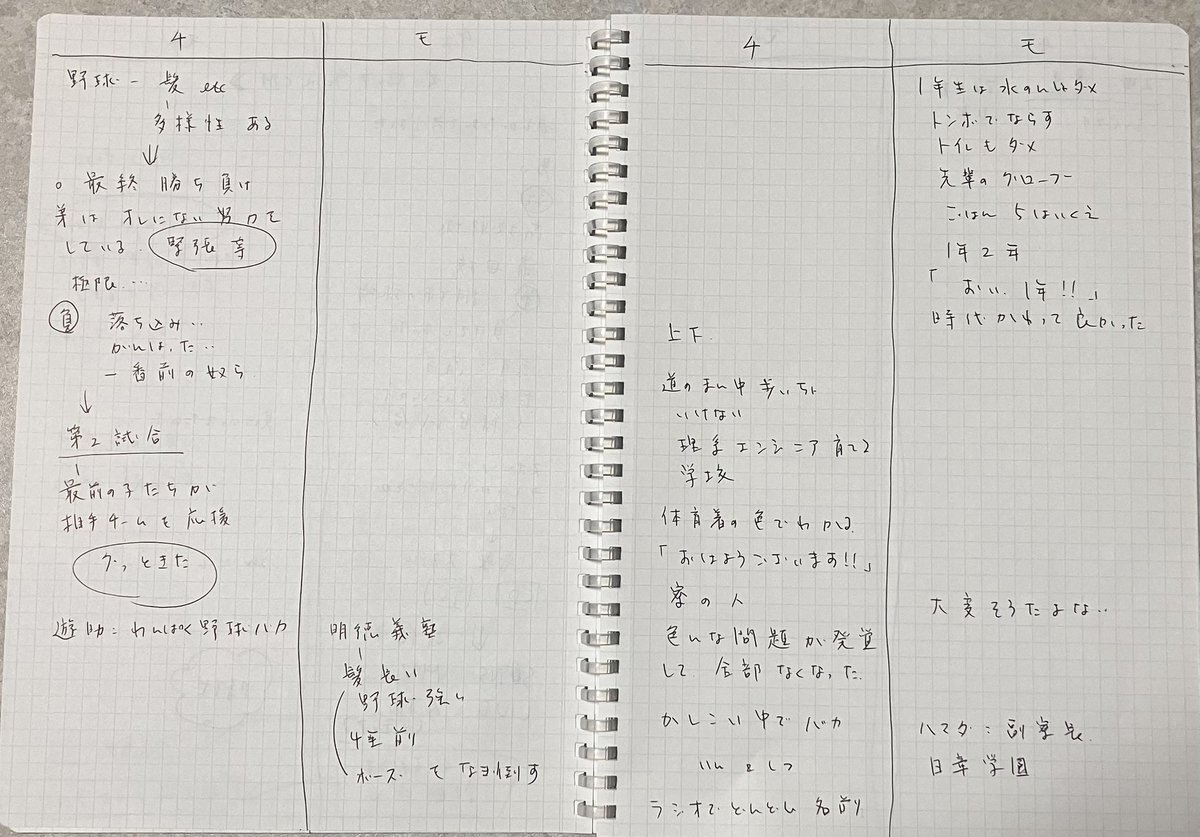 4
モ
野球 - 髪 etc
多様性 ある
↓
○ 最終 勝ち負け
弟は オレにない 努力を
している. 緊張 等
極限…
負 落ち込み‥
がんばった‥
一番前の奴ら
↓
第2試合
最前の子たちが
相手チームを応援
グっときた
遊助: わんぱく野球バカ
明徳義塾
髪長い
野球強い
ボーズ
なぎ倒す
4
モ
上下.
道のまん中歩いちゃ
いけない
理系エンジニア育てる
学校
体育着の色でわかる
「おはようございます!!」
寮の人
色んな問題が発覚
して 全部なくなった.
かしこい中でバカ
ラジオでどんどん名前
1年生は水のんじゃダメ
トンボでならす
トイレもダメ
先輩のグローブ
ごはん 5はいくえ
1年 2年
「おい. 1年!!」
時代かわって良かった
大変そうだよな‥
ハマダ: 副寮長.
日章学園